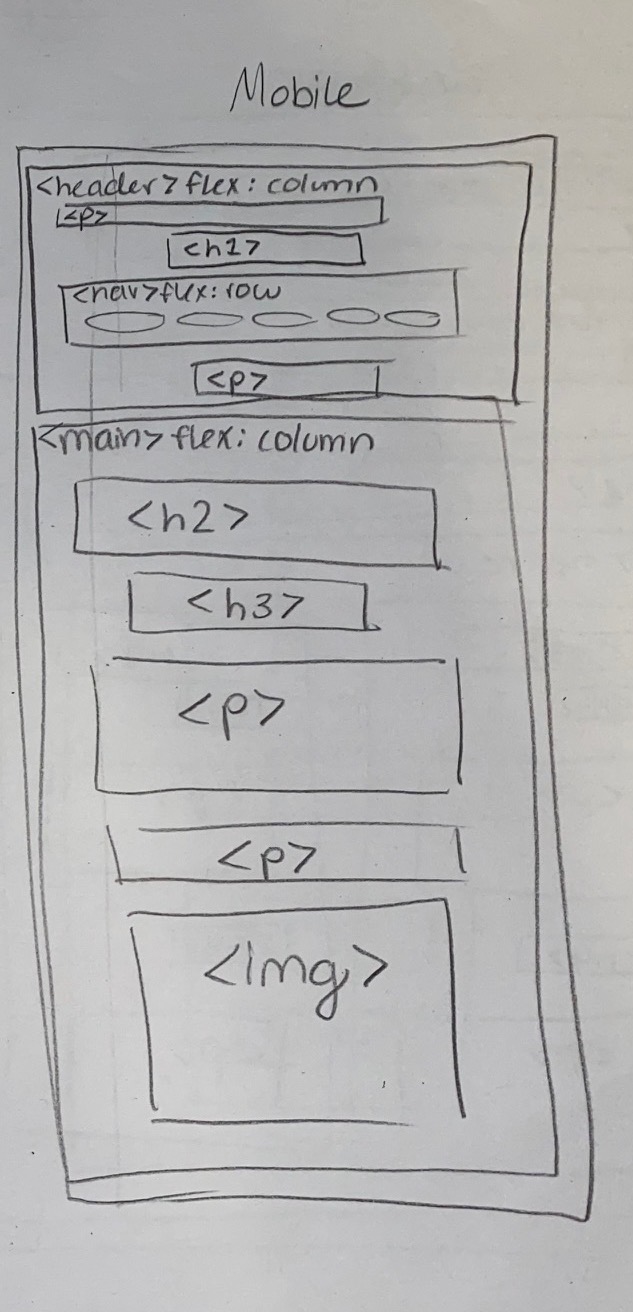 Mobile
<header> flex: column
<p>
<h1>
<nav> flex: row
<p>
<main> flex: column
<h2>
<h3>
<p>
<p>
<img>